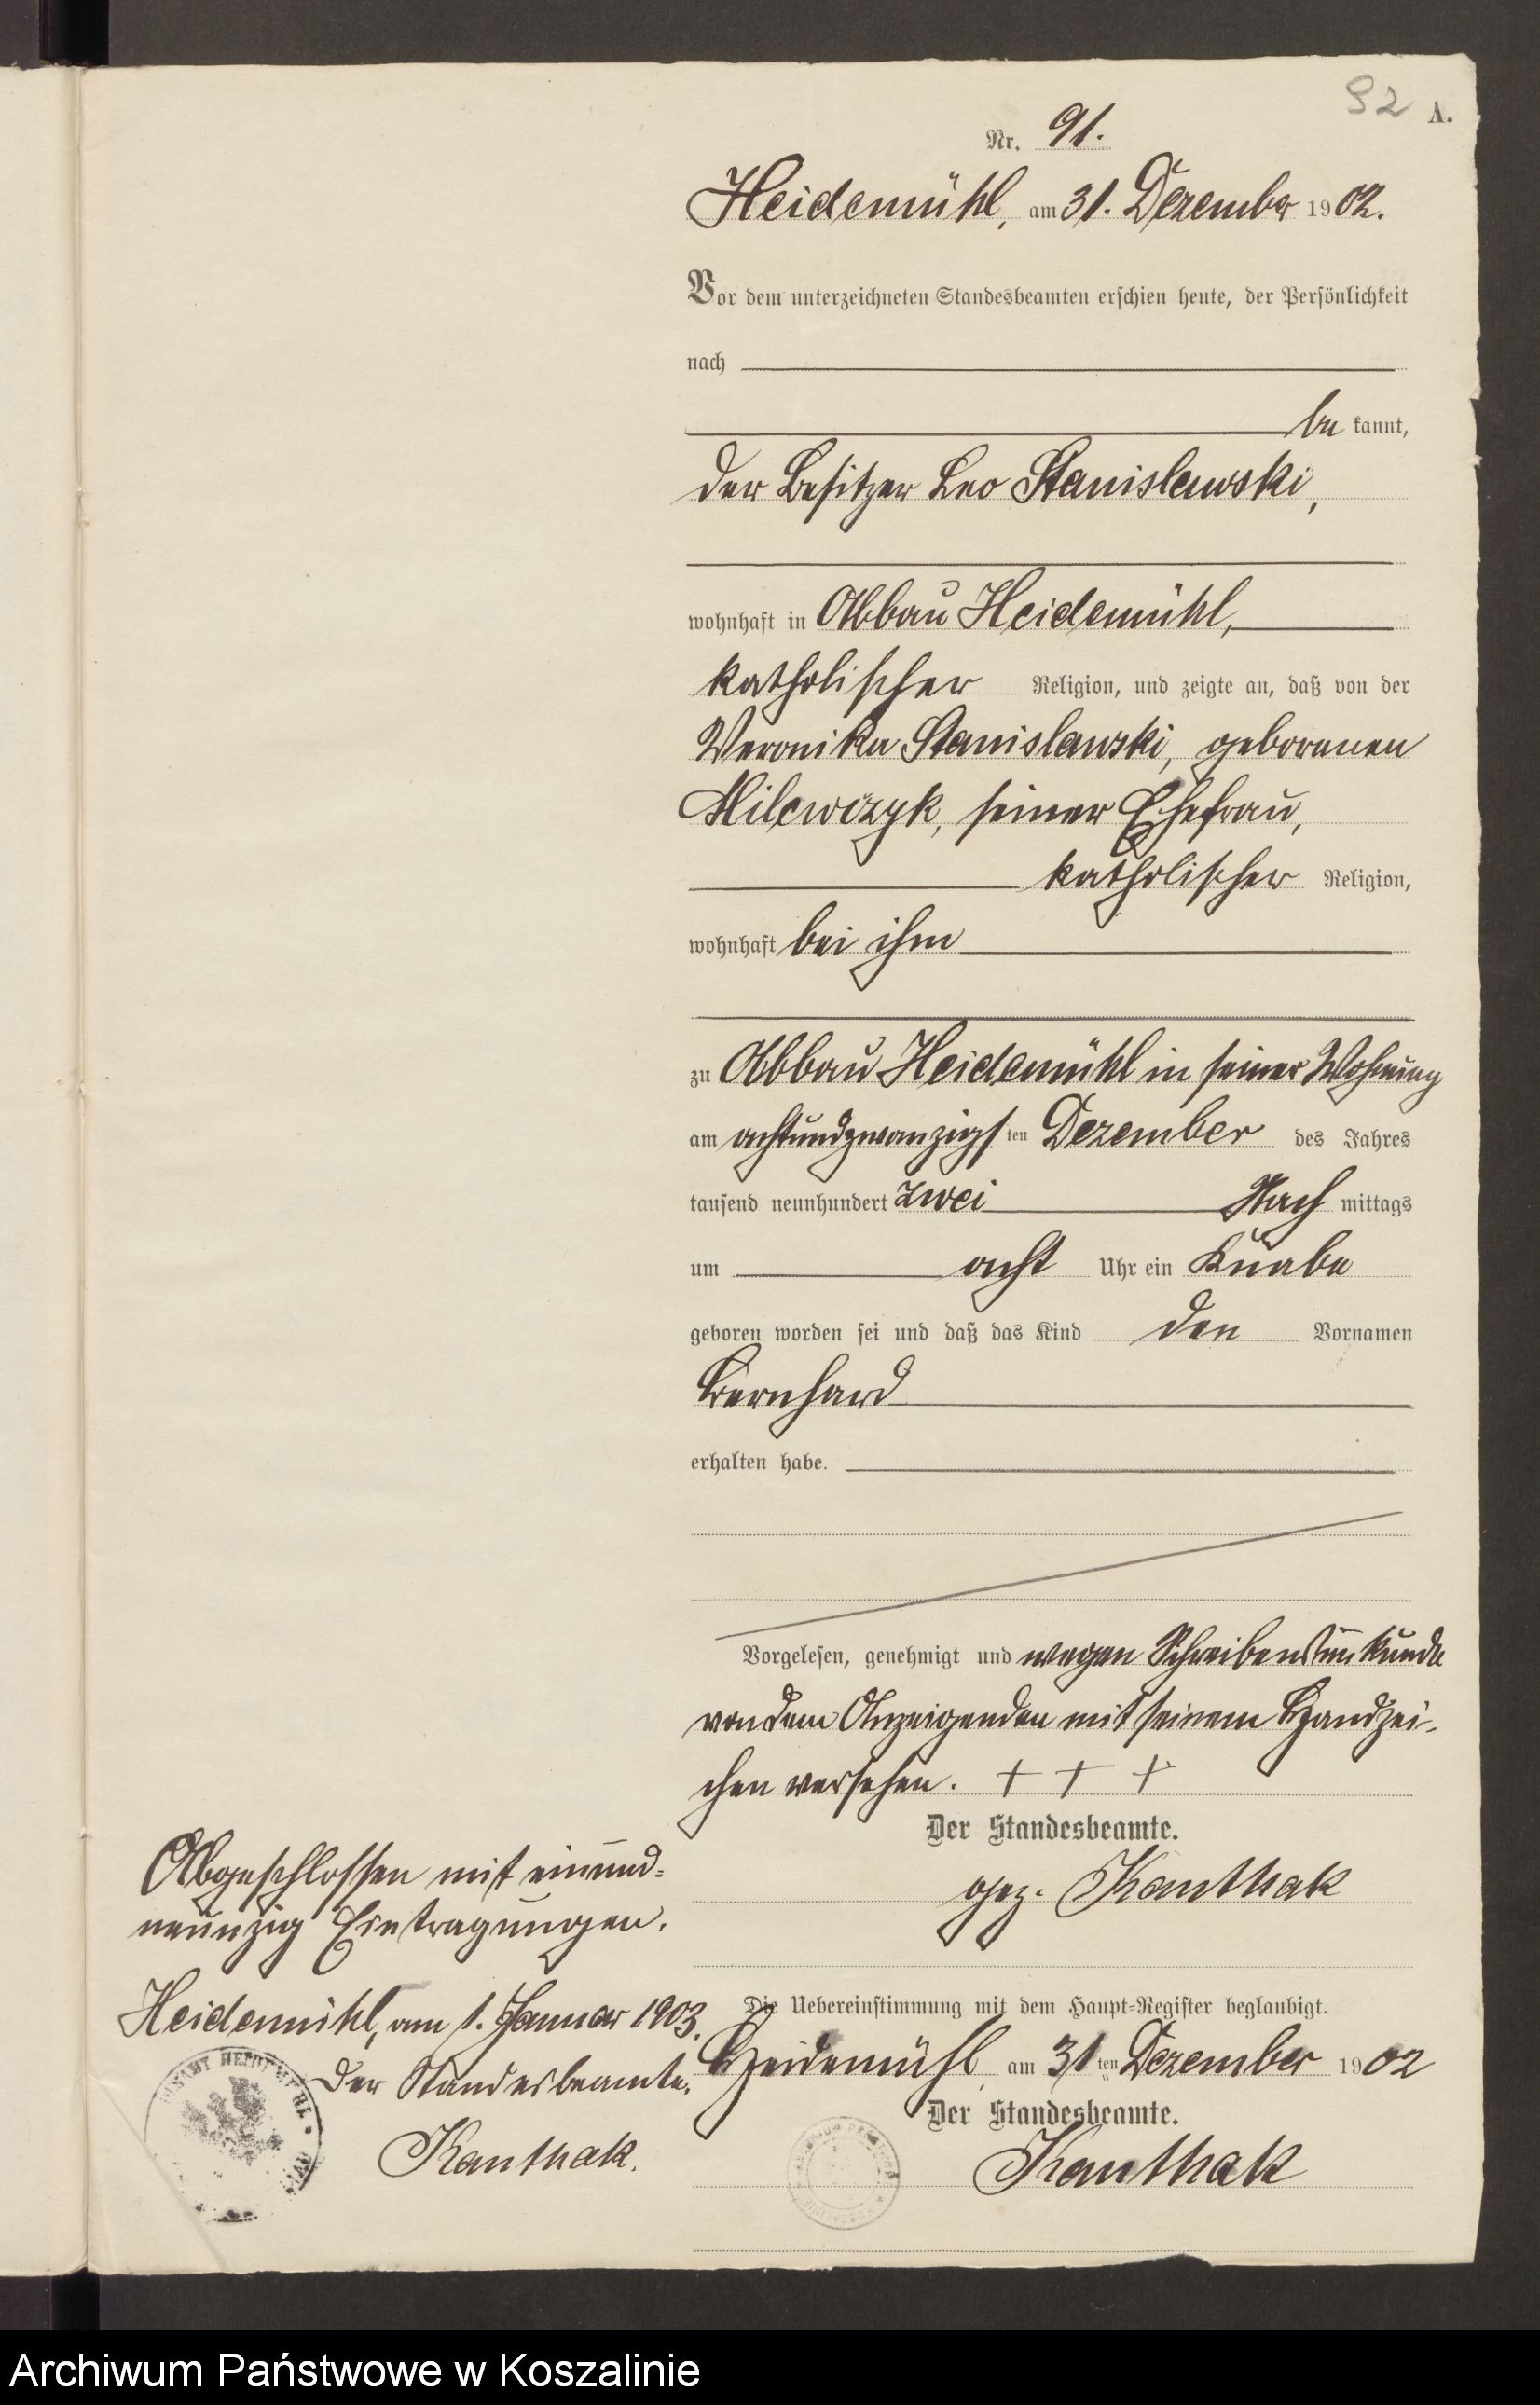 92 A.
Nr. 91.
Heidemühl, am 31. Dezember 1902.
Vor dem unterzeichneten Standesbeamten erschien heute, der Persönlichkeit
nach
be kannt,
der Besitzer Leo Stanislawski,
wohnhaft in Abbau Heidemühl,
katholischer Religion, und zeigte an, daß von der
Veronika Stanislawski, geborenen
Milewczyk, seiner Ehefrau,
katholischer Religion,
wohnhaft bei ihm
zu Abbau Heidemühl in seiner Wohnung
am achtundzwanzigsten Dezember des Jahres
tausend neunhundert zwei Nach mittags
um acht Uhr ein Knabe
geboren worden sei und daß das Kind den Vornamen
Bernhard
erhalten habe.
Vorgelesen, genehmigt und wegen Schreibensunkunde
von dem Anzeigenden mit seinem Handzei-
chen versehen. + + +
Der Standesbeamte.
gez. Kanthak
Die Uebereinstimmung mit dem Haupt-Register beglaubigt.
Heidemühl am 31ten Dezember 1902
Der Standesbeamte.
Kanthak
Abgeschlossen mit einund-
neunzig Eintragungen.
Heidemühl, am 1. Januar 1903.
Der Standesbeamte.
Kanthak.
Archiwum Państwowe w Koszalinie